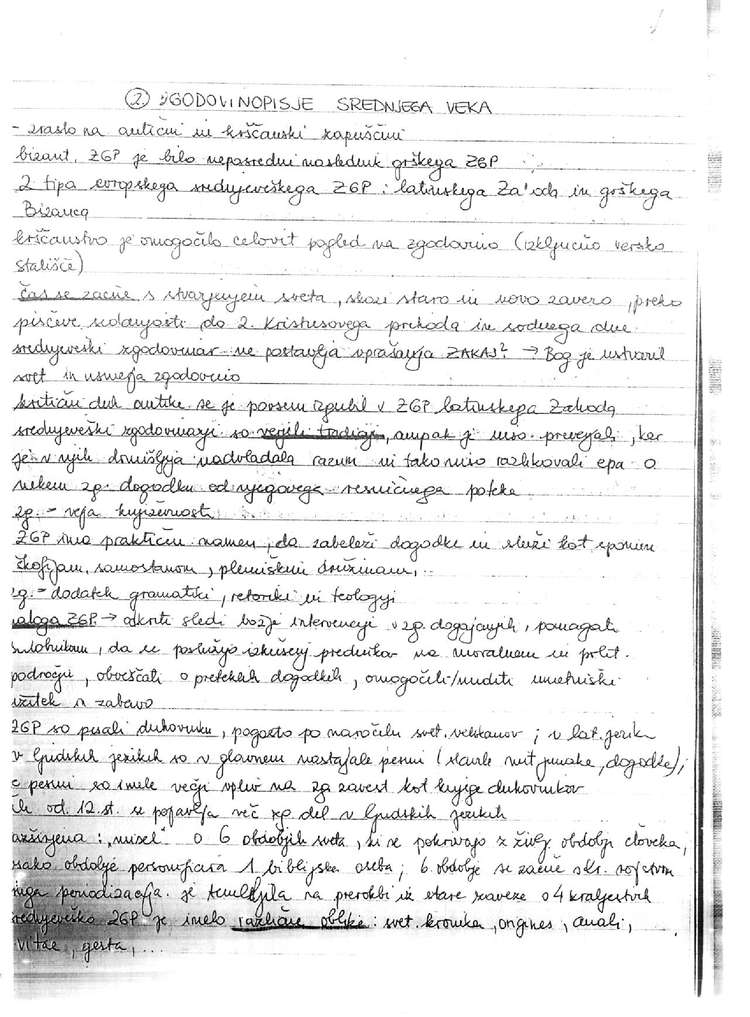 ② ZGODOVINOPISJE SREDNJEGA VEKA
- zraslo na antični in krščanski zapuščini
bizant. ZGP je bilo neposredni naslednik grškega ZGP
2 tipa evropskega srednjeveškega ZGP: latinskega Za'oda in grškega
Bizanca
krščanstvo je omogočilo celovit pogled na zgodovino (izključno versko
stališče)
čas se začne s stvarjenjem sveta, skozi staro in novo zavezo, preko
piščeve sedanjosti do 2. Kristusovega prehoda in sodnega dne
srednjeveški zgodovinar ne postavlja vprašanja ZAKAJ? → Bog je ustvaril
svet in usmerja zgodovino
kritični duh antike se je povsem izgubil v ZGP latinskega Zahoda
srednjeveški zgodovinarji so verjeli tradiciji, ampak je niso preverjali, ker
je v njih domišljija nadvladala razum in tako niso razlikovali epa o
nekem zg. dogodku od njegovega resničnega poteka
zg. - veja književnosti
ZGP ima praktičen namen, da zabeleži dogodke in služi kot spomin
škofijam, samostanom, plemiškim družinam,..
zg. - dodatek gramatiki, retoriki in teologiji
naloga ZGP → odkriti sledi božje intervencije v zg. dogajanjih, pomagati
, da se poslužijo izkušenj prednikov na moralnem in polit.
področju, obveščati o preteklih dogodkih, omogočiti/nuditi umetniški
užitek in zabavo
ZGP so pisali duhovniki, pogosto po naročilu svet. velikašev; v lat. jeziku
v ljudskih jezikih so v glavnem nastajale pesmi (slavile junake, dogodke);
te pesmi so imele večji vpliv na zg zavest kot knjige duhovnikov
od 12. st. se pojavlja več zg. del v ljudskih jezikih
razširjena: "misel" o 6 obdobjih sveta, ki se pokrivajo z življ. obdobji človeka,
vsako obdobje personificira 1 biblijska oseba; 6. obdobje se začne s kr. rojstvom
druga periodizacija je temeljila na prerokbi iz stare zaveze o 4 kraljestvih
srednjeveško ZGP je imelo različne oblike: svet. kronika, origines, anali,
vitae, gesta,...